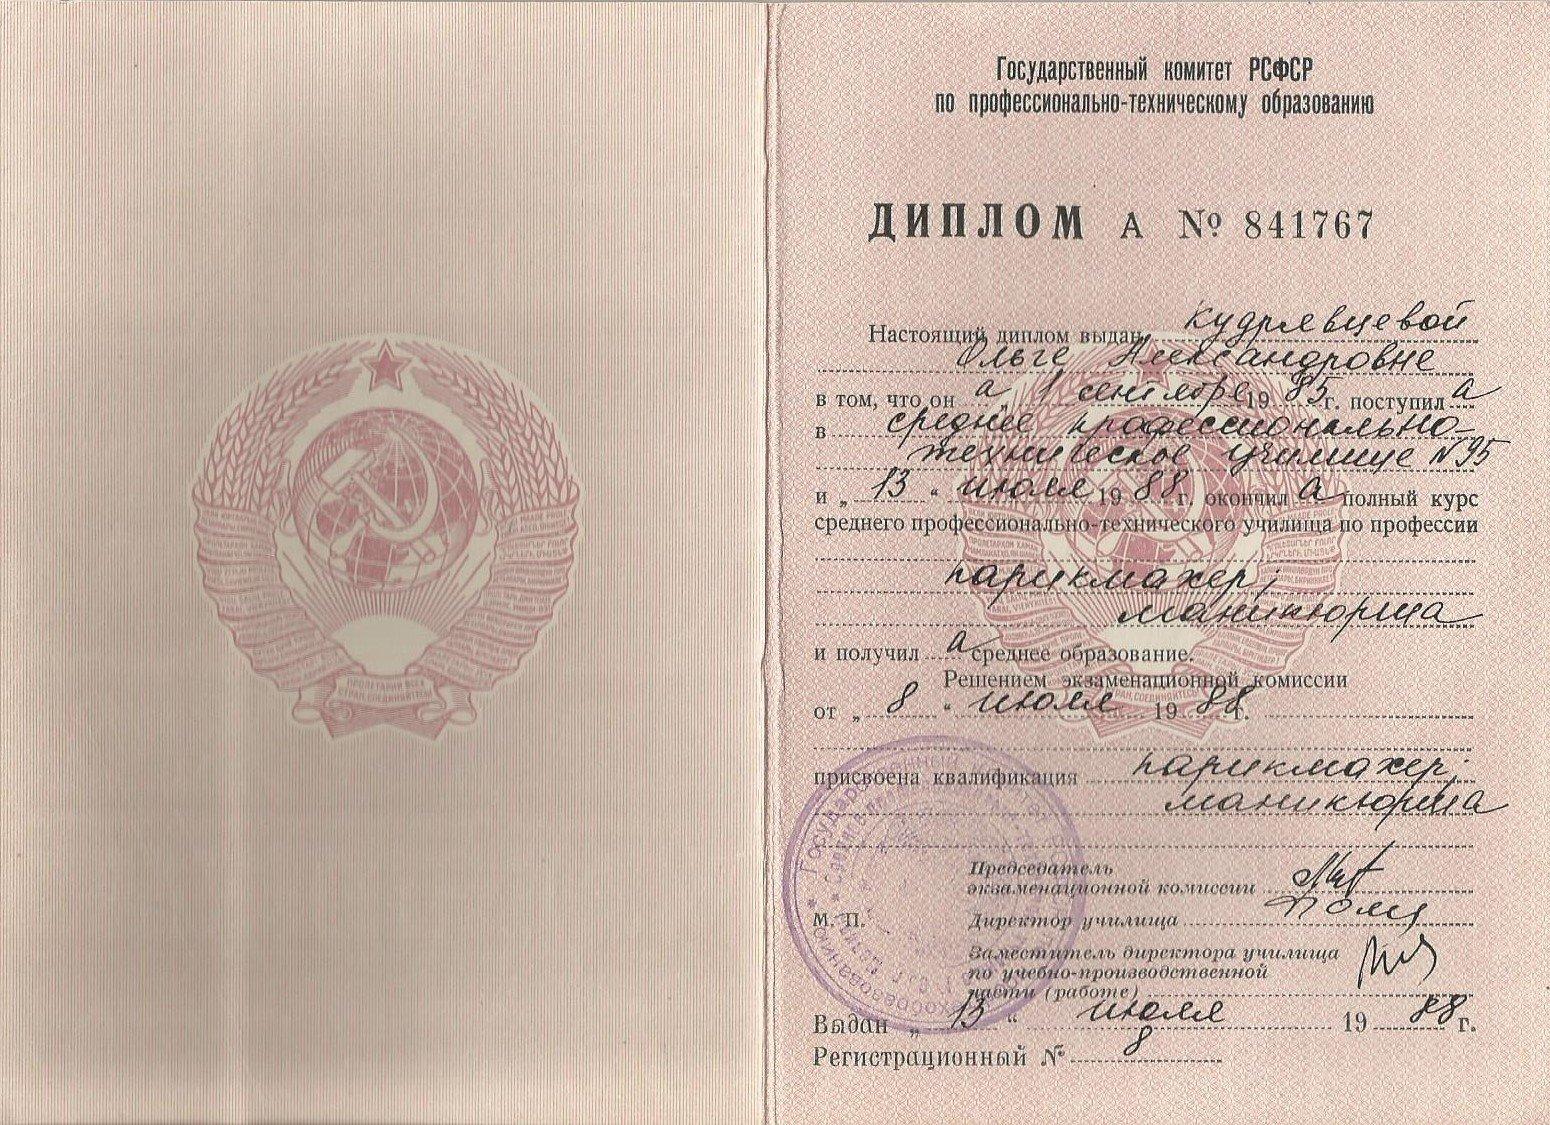 Государственный комитет РСФСР
по профессионально-техническому образованию
ДИПЛОМ А № 841767
Настоящий диплом выдан Кудрявцевой
Ольге Александровне
в том, что он а 1 сентября 19 85 г. поступил а
в среднее профессионально-
техническое училище №95
и „ 13 “ июля 19 88 г. окончил а полный курс
среднего профессионально-технического училища по профессии
парикмахер;
маникюрша
и получил а среднее образование.
Решением экзаменационной комиссии
от „ 8 “ июля 19 88 г.
присвоена квалификация парикмахер;
маникюрша
Председатель
экзаменационной комиссии
М. П. Директор училища
Заместитель директора училища
по учебно-производственной
части (работе)
Выдан „ 13 “ июля 19 88 г.
Регистрационный № 8